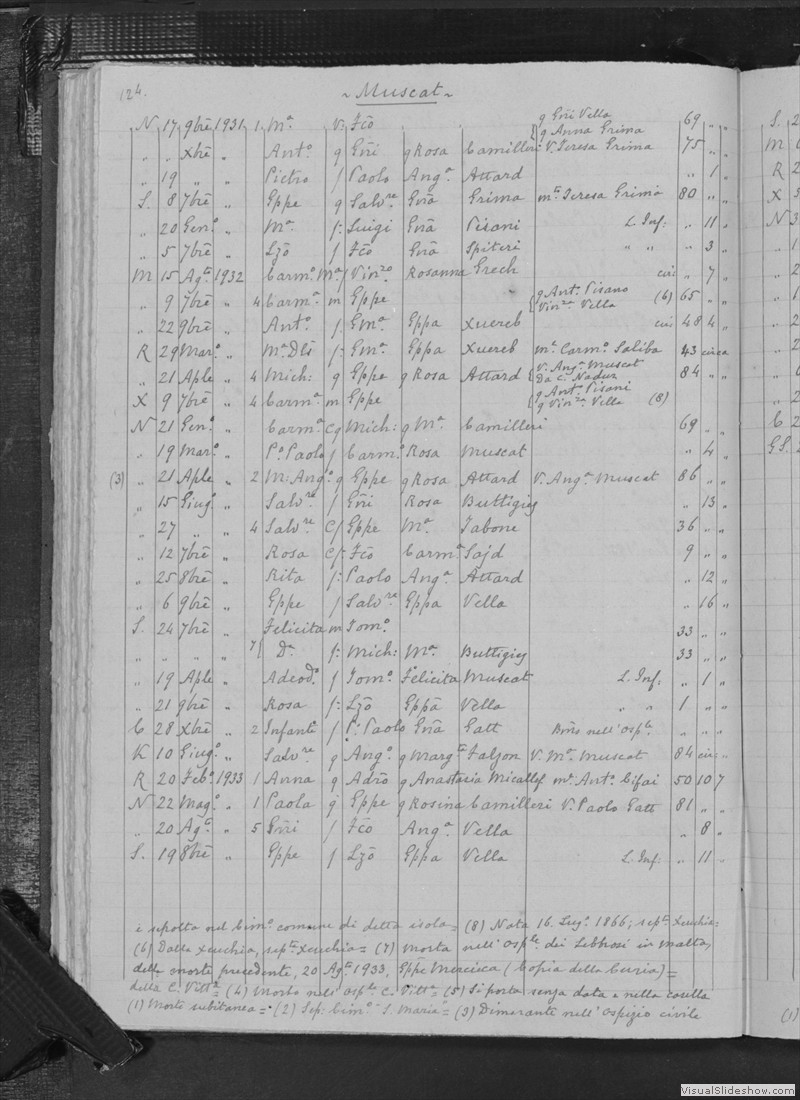 124.
~ Muscat ~
N 17 9bre 1931 1 Ma v. Fco { q Gñi Vella 69 " "
q Anna Grima
" " Xbre " Anto q Gñi q Rosa Camilleri V. Teresa Grima 75 " "
" 19 " " Pietro f Paolo Anga Attard " 1 "
S. 8 7bre " Eppe q Salvre Gña Grima mto Teresa Grima 80 " "
" 20 Geno " Ma f: Luigi Gña Pisani L. Inf: " 11 "
" 5 7bre " Lzō f Fco Gña Spiteri " " " 3 "
M 15 Agto 1932 Carmo Ma f Vinzo Rosanna Grech circ " 7 "
" 9 7bre " 4 Carma m Eppe { q Anto Pisano (6) 65 " "
Vinza Vella
" 22 9bre " Anto f. Gma Eppa Xuereb circ 48 4 "
R 29 Maro " Ma Dls f: Gma Eppa Xuereb mta Carmo Saliba 43 circa
" 21 Aple " 4 Mich: q Eppe q Rosa Attard { V. Anga Muscat 84 " "
Da C. Nadur
X 9 7bre " 4 Carma m Eppe { q Anto Pisani
q Vinza Vella (8)
N 21 Geno " Carma C q Mich: q Ma Camilleri 69 " "
" 19 Maro " Po Paolo f Carmo Rosa Muscat " 4 "
(3) " 21 Aple " 2 M: Ango q Eppe q Rosa Attard V. Anga Muscat 86 " "
" 15 Giugo " Salvre f Gñi Rosa Buttigieg " 13 "
" 27 " " 4 Salvre C f Eppe Ma Tabone 36 " "
" 12 7bre " Rosa C f: Fco Carma Sajd 9 " "
" 25 8bre " Rita f: Paolo Anga Attard " 12 "
" 6 9bre " Eppe f Salvre Eppa Vella " 16 "
S. 24 7bre " Felicita m Tomo 33 " "
" " " " 7 { Da f: Mich: Ma Buttigieg 33 " "
" 19 Aple " Adeodo f Tomo Felicita Muscat L. Inf: " 1 "
" 21 9bre " Rosa f: Lzō Eppa Vella " " 1 " "
C 28 Xbre " 2 Infante f P: Paolo Gña Gatt nell'Osple " " "
K 10 Giugo " Salvre q Ango q Margta Falzon V. Ma Muscat 84 circ "
R 20 Febo 1933 1 Anna q Adrō q Anastasia Micallef mta Anto Cifai 50 10 7
N 22 Mago " 1 Paola q Eppe q Rosina Camilleri V. Paolo Gatt 81 " "
" 20 Agto " 5 Gñi f Fco Anga Vella " 8 "
S. 19 8bre " Eppe f Lzō Eppa Vella L. Inf: " 11 "
è sepolta nel Cimo comune di detta isola = (8) Nata 16. Lugo 1866; septa Xeuchia =
(6) Dalla Xeuchia, septa Xeuchia = (7) Morta nell'Osple dei Lebbrosi in Malta,
della morte precedente, 20 Agto 1933, Eppe Mercieca (Copia della Curia) =
della C. Vitta = (4) Morto nell'Osple C. Vitta = (5) Si porta senza data e nella
(1) Morte subitanea = (2) Sep: Cimo S. Maria = (3) Dimorante nell'Ospizio civile
S. 2
M
R 2
X 3
N 3
" 1
" 2
" 1
" 2
" 2
C 2
GS. 2
(1)
VisualSlideshow.com